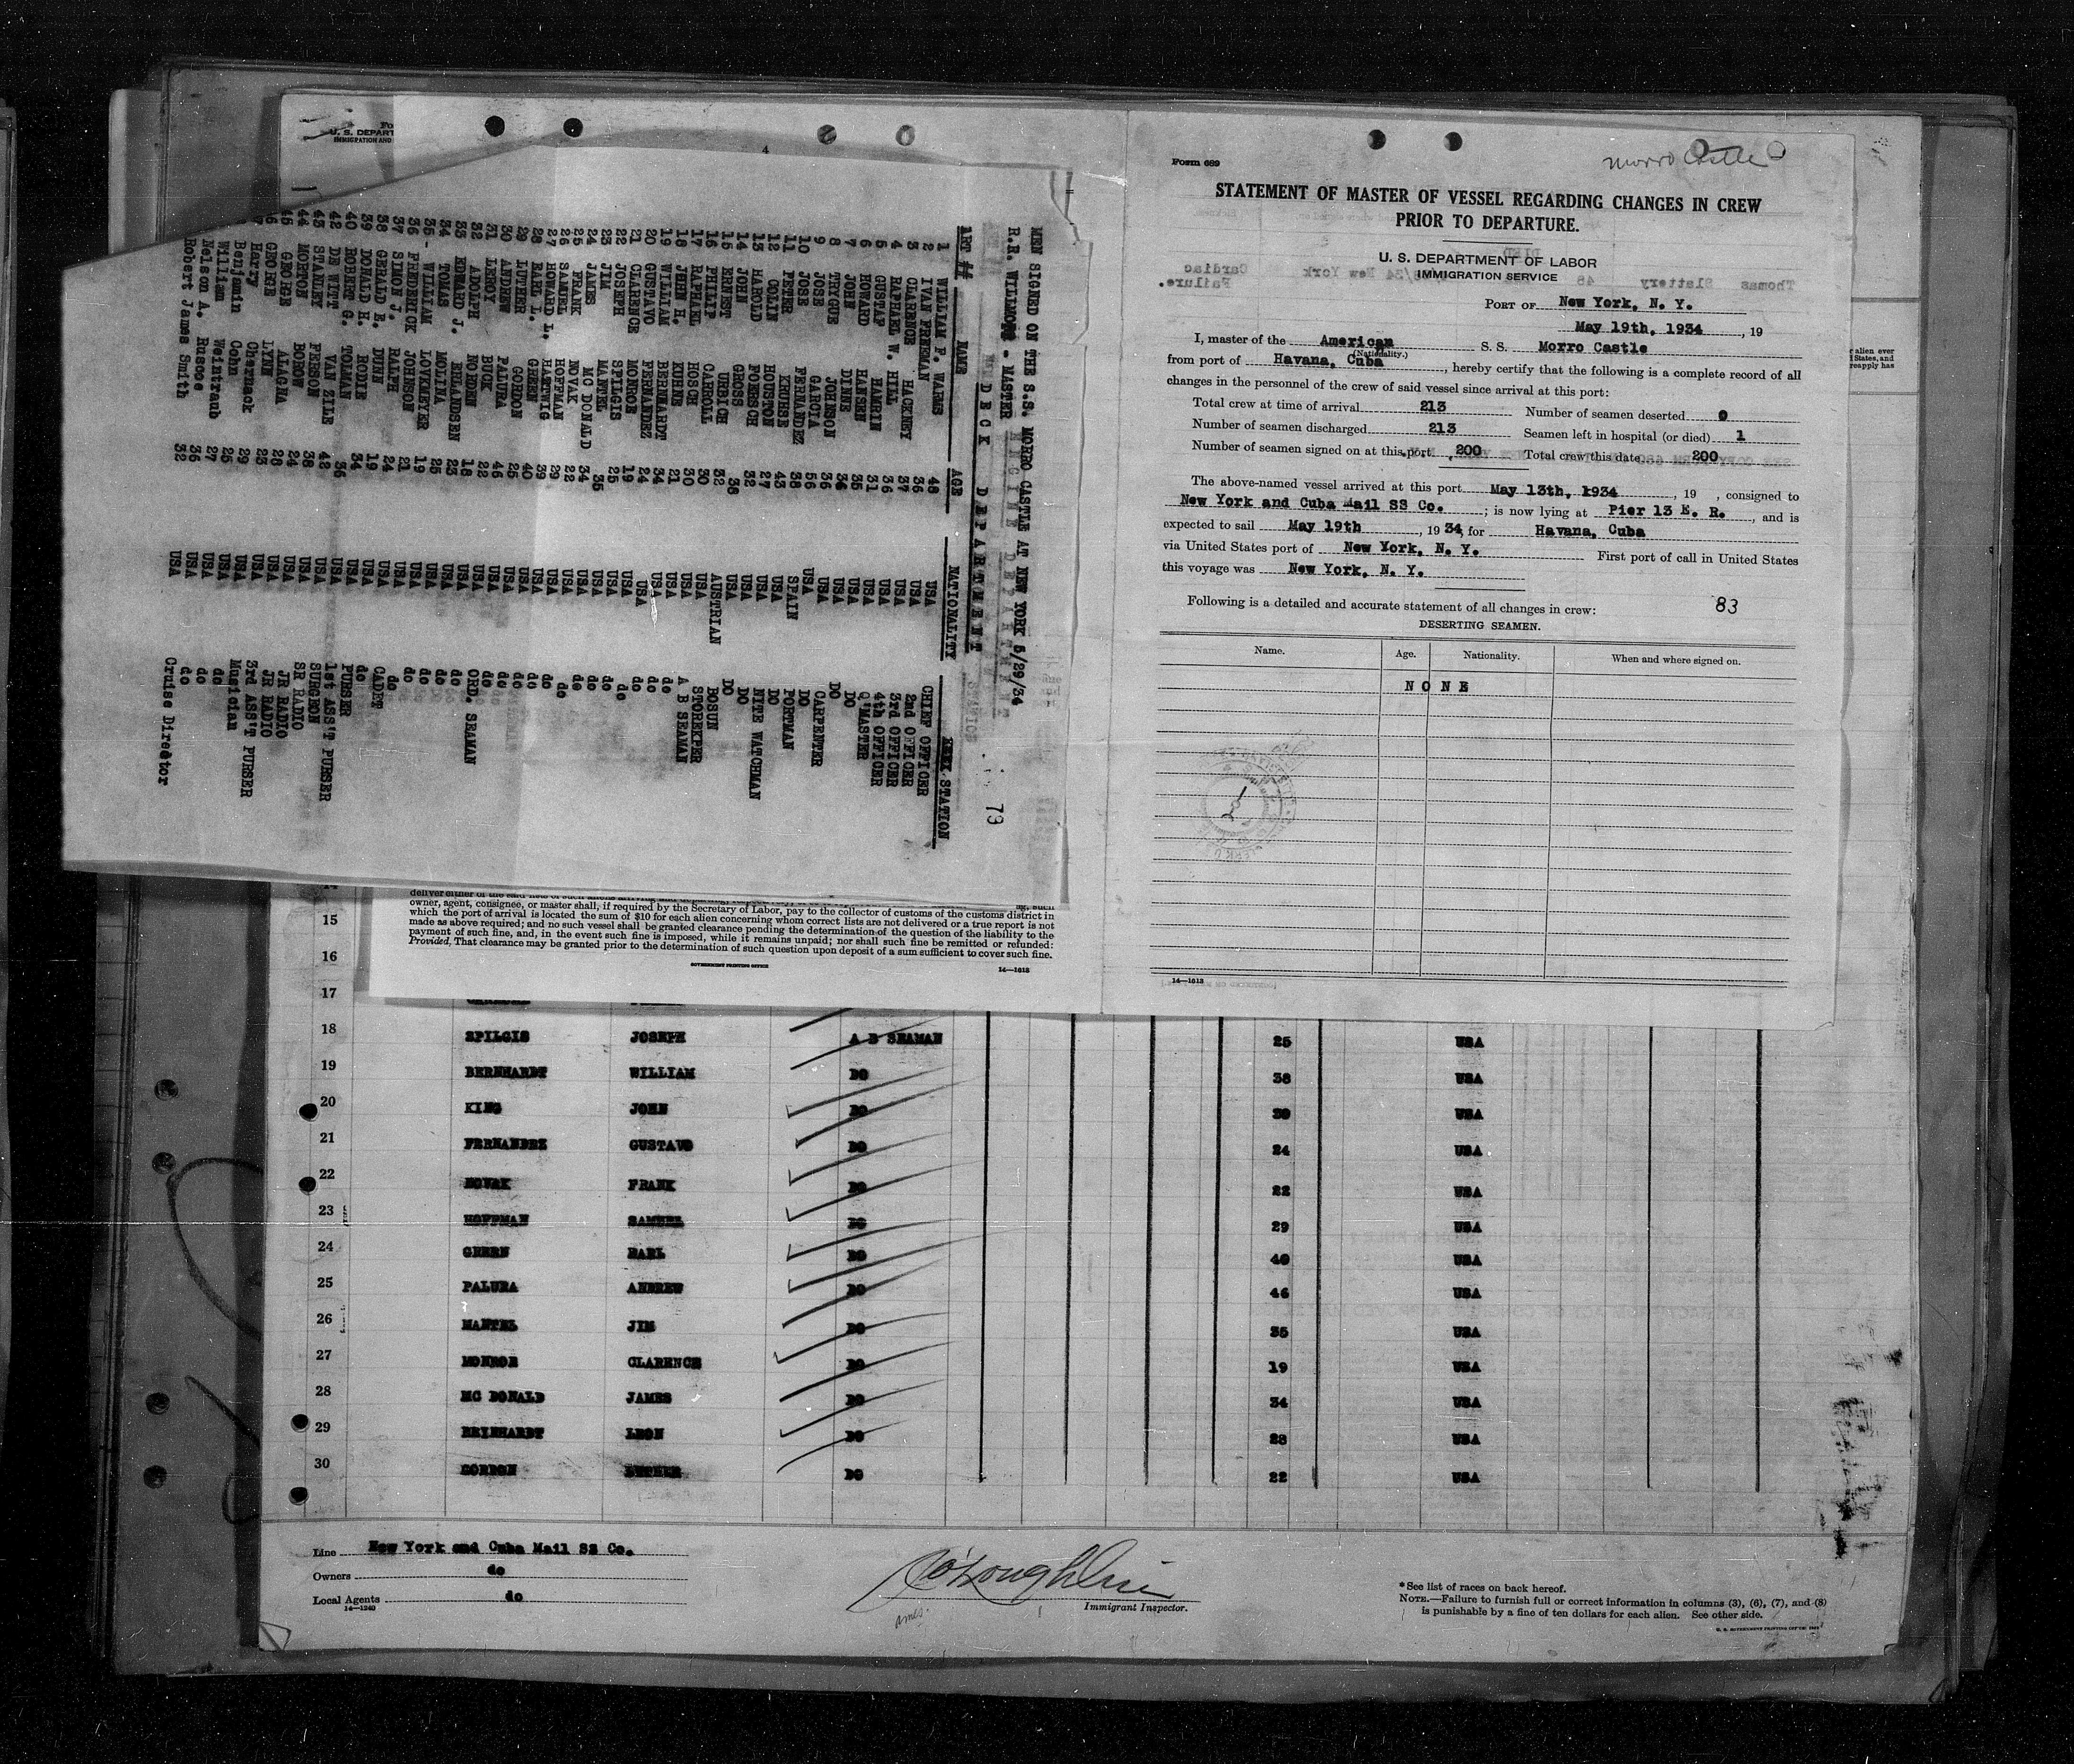 Form 689
Morro Castle
STATEMENT OF MASTER OF VESSEL REGARDING CHANGES IN CREW
PRIOR TO DEPARTURE.
U. S. DEPARTMENT OF LABOR
IMMIGRATION SERVICE
PORT OF New York, N. Y.
May 19th, 1934, 19
I, master of the American S. S. Morro Castle
(Nationality.)
from port of Havana, Cuba, hereby certify that the following is a complete record of all
changes in the personnel of the crew of said vessel since arrival at this port:
Total crew at time of arrival 213 Number of seamen deserted 0
Number of seamen discharged 213 Seamen left in hospital (or died) 1
Number of seamen signed on at this port 200 Total crew this date 200
The above-named vessel arrived at this port May 13th, 1934, 19 , consigned to
New York and Cuba Mail SS Co. ; is now lying at Pier 13 E. R., and is
expected to sail May 19th, 1934, for Havana, Cuba
via United States port of New York, N. Y. First port of call in United States
this voyage was New York, N. Y.
Following is a detailed and accurate statement of all changes in crew: 83
DESERTING SEAMEN.
Name. Age. Nationality. When and where signed on.
NONE
14—1613
U. S. DEPART
IMMIGRATION AND
4
MEN SIGNED ON THE S.S. MORRO CASTLE AT NEW YORK 5/29/34
R.R. WILLMOTT - MASTER
79
DECK DEPARTMENT
ART ## NAME AGE NATIONALITY STATION
1 WILLIAM F. WARMS 48 USA CHIEF OFFICER
2 IVAN FREEMAN 36 USA 2nd OFFICER
3 CLARENCE HACKNEY 37 USA 3rd OFFICER
4 RAPHAEL W. HILL 36 USA 4th OFFICER
5 GUSTAF HAMRIN 31 USA Q'MASTER
6 HOWARD HANSEN 35 USA DO
7 JOHN DINNE 36 USA DO
8 TRYGUE JOHNSON 36 USA CARPENTER
9 JOSE GARCIA 56 USA DO
10 JOSE FERNANDEZ 38 SPAIN PORTMAN
11 PETER KRUSE 43 USA DO
12 COLIN HOUSTON 27 USA NITE WATCHMAN
13 HAROLD FOERSCH 32 USA DO
14 JOHN GROSS 38 USA DO
15 ERNEST URBICH 32 AUSTRIAN BOSUN
16 PHILIP CARROLL 30 USA STOREKEPER
17 RAPHAEL HOSCH 30 USA A B SEAMAN
18 JOHN H. KUHNE 21 USA do
19 WILLIAM BERNHARDT 34 USA do
20 GUSTAVO FERNANDEZ 24 USA do
21 CLARENCE MONROE 19 USA do
22 JOSEPH SPILGIS 25 USA do
23 JIM MANTEL 35 USA do
24 JAMES MC DONALD 34 USA do
25 FRANK NOVAK 22 USA do
26 SAMUEL HOFFMAN 29 USA do
27 HOWARD L. HARTWIG 39 USA do
28 EARL L. GREEN 40 USA do
29 LUTHER GORDON 25 USA do
30 ANDREW PALURA 46 USA do
31 LEROY BUCK 22 USA ORD. SEAMAN
32 ADOLPH NO RDEN 18 USA do
33 EDWARD J. ERLANDSEN 23 USA do
34 TOMAS MOLINA 25 USA do
35 WILLIAM LOTKEYER 19 USA do
36 FREDERICK JOHNSON 21 USA do
37 SIMON J. RALPH 24 USA do
38 GERALD E. DUNN 19 USA CADET
39 DONALD H. RODIE 34 USA do
40 ROBERT G. TOLMAN 36 USA PURSER
42 DE WITT VAN ZILE 42 USA SURGEON
43 STANLEY FERSON 38 USA SR RADIO
44 MORTON BOROW 24 USA 1st ASS'T PURSER
45 GEORGE ALAGNA 28 USA JR RADIO
46 GEORGE LYNN 23 USA 3rd ASS'T PURSER
Harry Chernack 29 USA Musician
Benjamin Cohn 25 USA do
William Weintraub 27 USA do
Nelson A. Ruscoe 36 USA do
Robert James Smith 32 USA Cruise Director
owner, agent, consignee, or master shall, if required by the Secretary of Labor, pay to the collector of customs of the customs district in
which the port of arrival is located the sum of $10 for each alien concerning whom correct lists are not delivered or a true report is not
made as above required; and no such vessel shall be granted clearance pending the determination of the question of the liability to the
payment of such fine, and, in the event such fine is imposed, while it remains unpaid; nor shall such fine be remitted or refunded:
Provided, That clearance may be granted prior to the determination of such question upon deposit of a sum sufficient to cover such fine.
GOVERNMENT PRINTING OFFICE 14—1613
15
16
17
18 SPILGIS JOSEPH A B SEAMAN 25 USA
19 BERNHARDT WILLIAM DO 38 USA
20 KING JOHN DO 30 USA
21 FERNANDEZ GUSTAVO DO 24 USA
22 NOVAK FRANK DO 22 USA
23 HOFFMAN SAMUEL DO 29 USA
24 GREEN EARL DO 40 USA
25 PALURA ANDREW DO 46 USA
26 MANTEL JIM DO 35 USA
27 MONROE CLARENCE DO 19 USA
28 MC DONALD JAMES DO 34 USA
29 REINHARDT LEON DO 28 USA
30 GORDON LUTHER DO 22 USA
Line New York and Cuba Mail SS Co.
Owners do
Local Agents do
14—1240
Immigrant Inspector.
*See list of races on back hereof.
NOTE.—Failure to furnish full or correct information in columns (3), (6), (7), and (8)
is punishable by a fine of ten dollars for each alien. See other side.